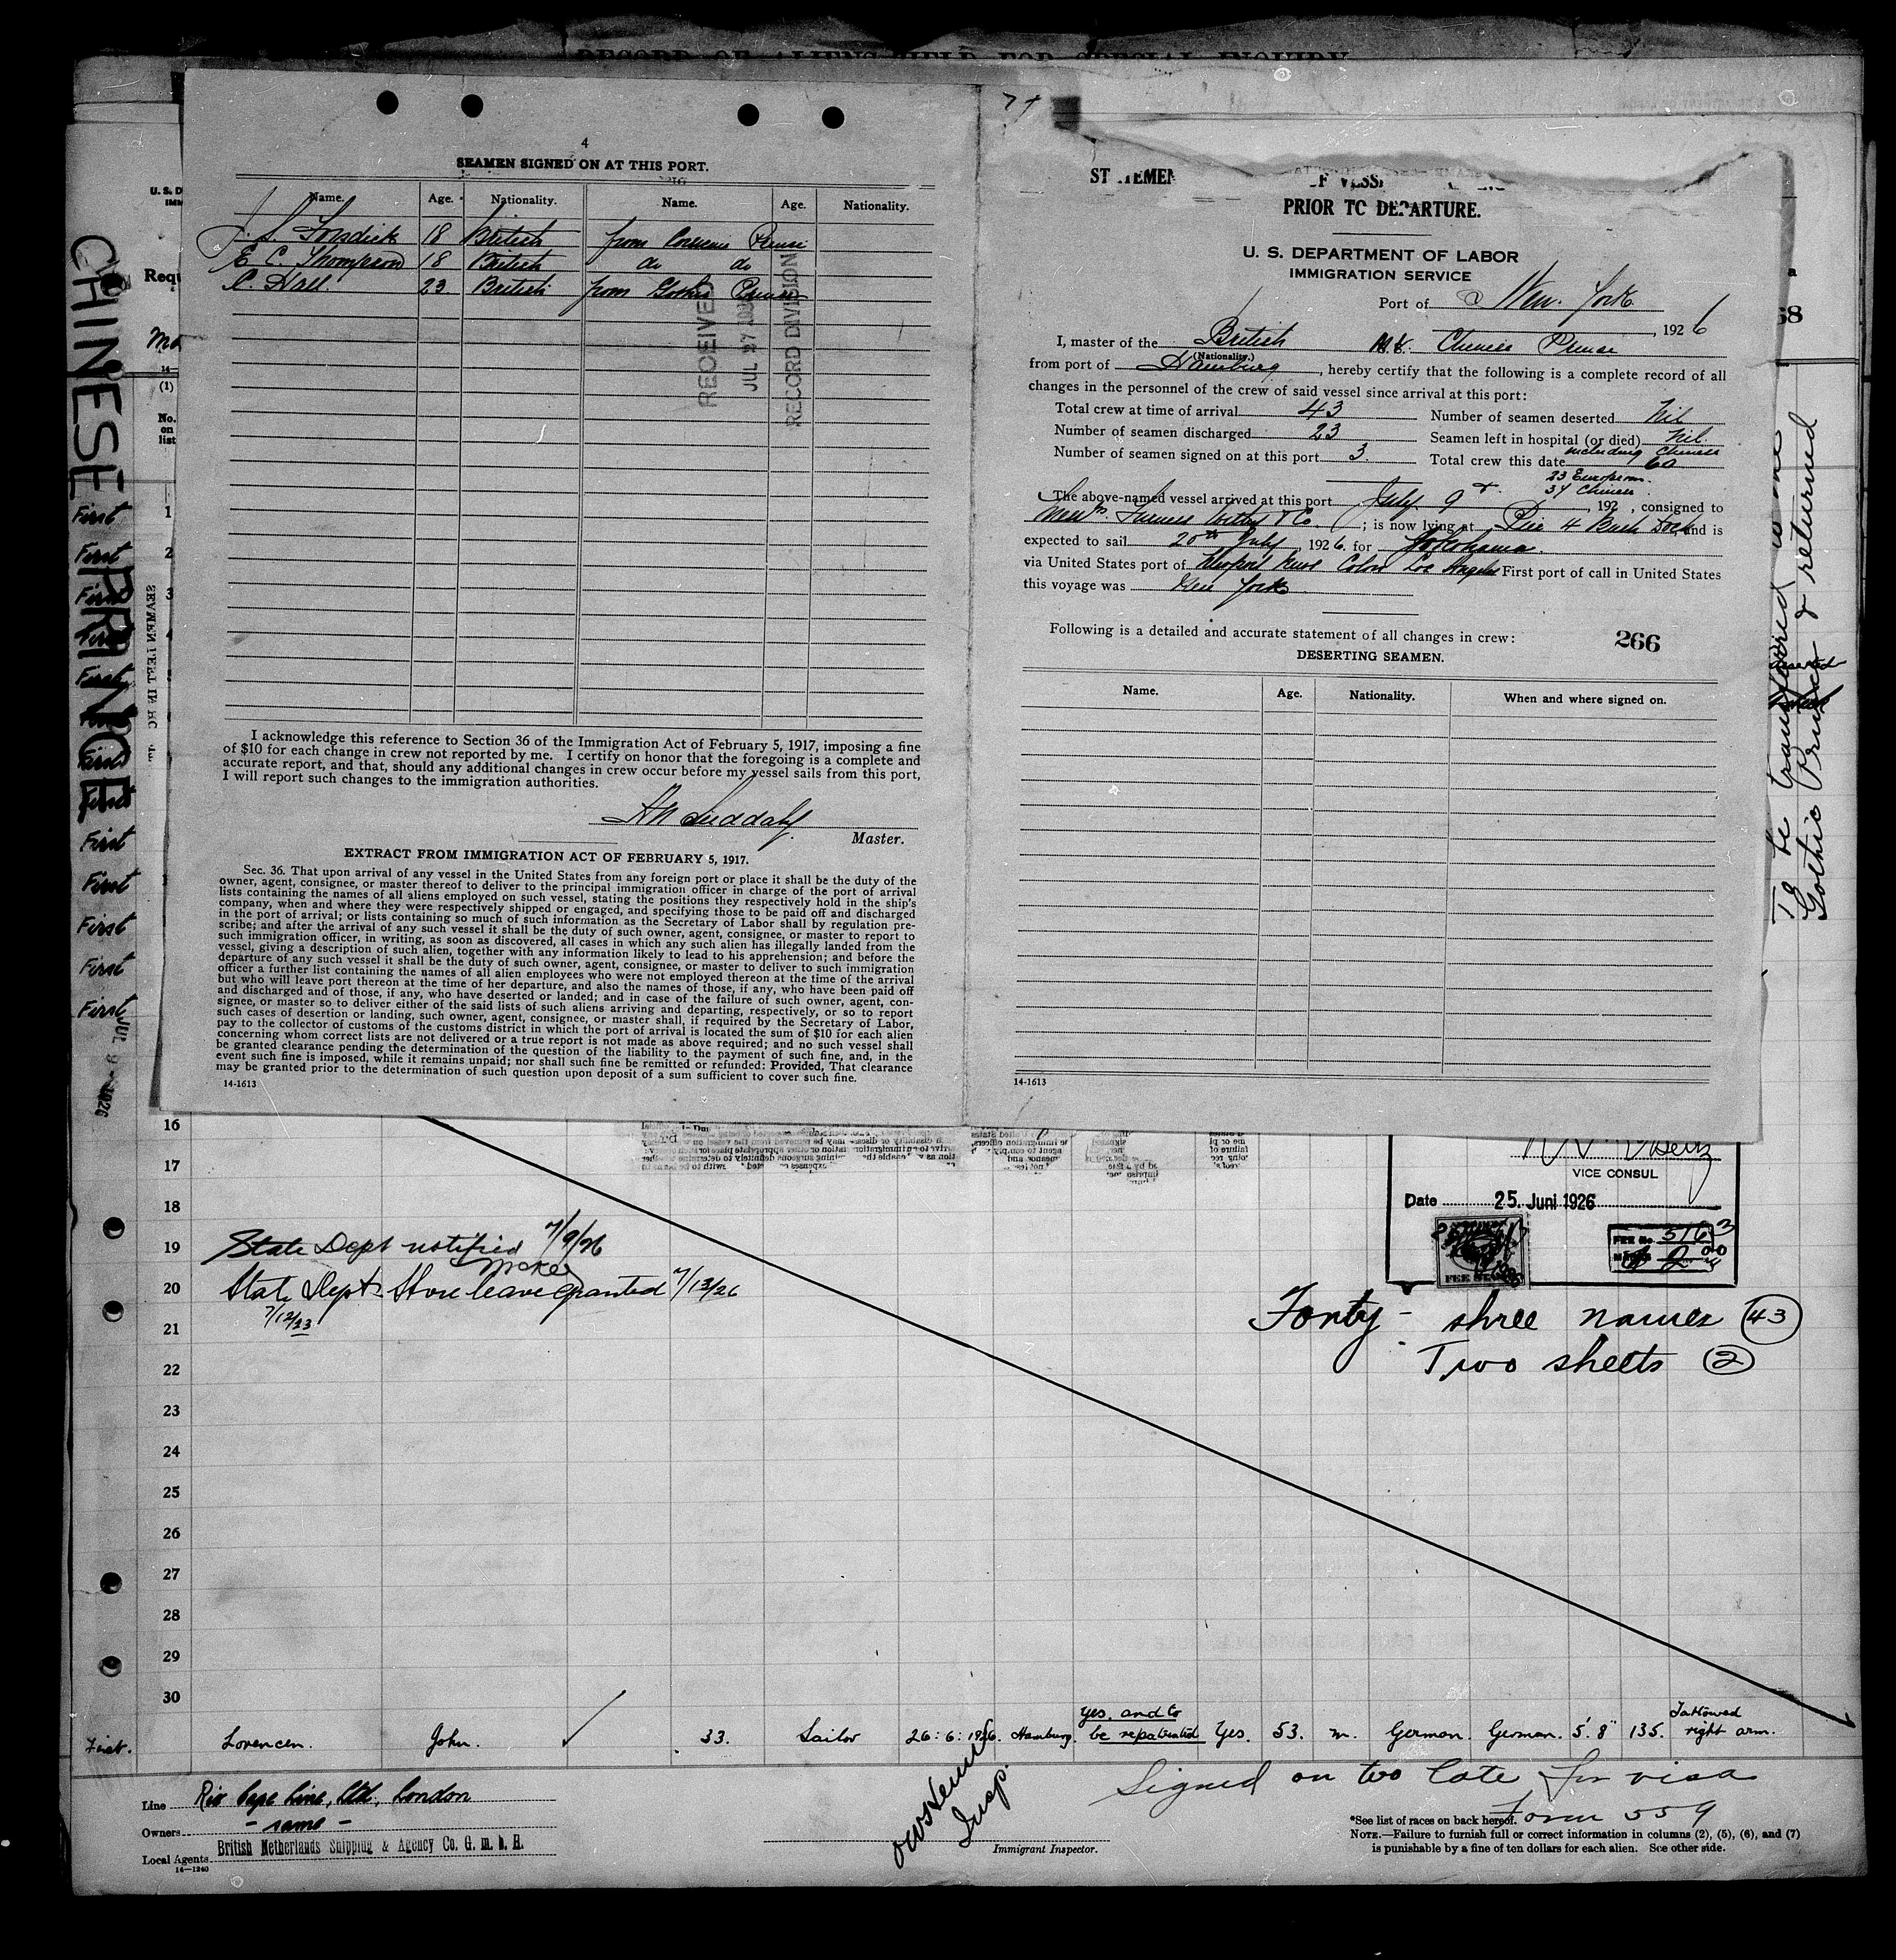 RECORD OF ALIENS HELD FOR SPECIAL INQUIRY
4
SEAMEN SIGNED ON AT THIS PORT.
Name. Age. Nationality. Name. Age. Nationality.
18 British from Prince
E C. Thompson 18 British do do
C. Hall. 23 British from Gothic Prince
RECEIVED
JUL 27
RECORD DIVISION
I acknowledge this reference to Section 36 of the Immigration Act of February 5, 1917, imposing a fine
of $10 for each change in crew not reported by me. I certify on honor that the foregoing is a complete and
accurate report, and that, should any additional changes in crew occur before my vessel sails from this port,
I will report such changes to the immigration authorities.
Master.
EXTRACT FROM IMMIGRATION ACT OF FEBRUARY 5, 1917.
Sec. 36. That upon arrival of any vessel in the United States from any foreign port or place it shall be the duty of the
owner, agent, consignee, or master thereof to deliver to the principal immigration officer in charge of the port of arrival
lists containing the names of all aliens employed on such vessel, stating the positions they respectively hold in the ship's
company, when and where they were respectively shipped or engaged, and specifying those to be paid off and discharged
in the port of arrival; or lists containing so much of such information as the Secretary of Labor shall by regulation pre-
scribe; and after the arrival of any such vessel it shall be the duty of such owner, agent, consignee, or master to report to
such immigration officer, in writing, as soon as discovered, all cases in which any such alien has illegally landed from the
vessel, giving a description of such alien, together with any information likely to lead to his apprehension; and before the
departure of any such vessel it shall be the duty of such owner, agent, consignee, or master to deliver to such immigration
officer a further list containing the names of all alien employees who were not employed thereon at the time of the arrival
but who will leave port thereon at the time of her departure, and also the names of those, if any, who have been paid off
and discharged and of those, if any, who have deserted or landed; and in case of the failure of such owner, agent, con-
signee, or master so to deliver either of the said lists of such aliens arriving and departing, respectively, or so to report
such cases of desertion or landing, such owner, agent, consignee, or master shall, if required by the Secretary of Labor,
pay to the collector of customs of the customs district in which the port of arrival is located the sum of $10 for each alien
concerning whom correct lists are not delivered or a true report is not made as above required; and no such vessel shall
be granted clearance pending the determination of the question of the liability to the payment of such fine, and, in the
event such fine is imposed, while it remains unpaid; nor shall such fine be remitted or refunded: Provided, That clearance
may be granted prior to the determination of such question upon deposit of a sum sufficient to cover such fine.
14-1613
PRIOR TO DEPARTURE.
U. S. DEPARTMENT OF LABOR
IMMIGRATION SERVICE
Port of New York
, 1926
I, master of the British M.V. Chinese Prince
(Nationality.)
from port of Hamburg, hereby certify that the following is a complete record of all
changes in the personnel of the crew of said vessel since arrival at this port:
Total crew at time of arrival 43 Number of seamen deserted Nil
Number of seamen discharged 23 Seamen left in hospital (or died) Nil.
Number of seamen signed on at this port 3. Total crew this date including Chinese 60
23 European.
The above-named vessel arrived at this port July 9th, 192 , consigned to
Messrs. Furness Withy & Co. ; is now lying at Pier 4 Bush Dock, and is
expected to sail 20th July, 1926 for Yokohama.
via United States port of Newport News Colon Los Angeles First port of call in United States
this voyage was New York
Following is a detailed and accurate statement of all changes in crew:
266
DESERTING SEAMEN.
Name. Age. Nationality. When and where signed on.
14-1613
CHINESE PRINCE
First
First
First
First
First
First
First
First
First
First
First
First
First
JUL 9 1926
To be transferred to the
Gothic Prince & returned
VICE CONSUL
Date 25. Juni 1926
16
17
18
19 State Dept notified 7/9/26
20 State Dept. Shore leave granted 7/13/26
21
Forty-three names (43)
Two sheets (2)
22
23
24
25
26
27
28
29
30
First. Lorencen. John. 33. Sailor 26:6:1926. Hamburg. Yes. and to be repatriated Yes. 53. m. German. German. 5' 8" 135. Tattowed right arm.
Signed on too late for visa
Form 559
Line Rio Cape Line, Ltd, London
Owners - same -
Local Agents British Netherlands Shipping & Agency Co. G. m. b. H.
14-1240
Insp.
Immigrant Inspector.
*See list of races on back hereof.
NOTE.—Failure to furnish full or correct information in columns (2), (5), (6), and (7)
is punishable by a fine of ten dollars for each alien. See other side.